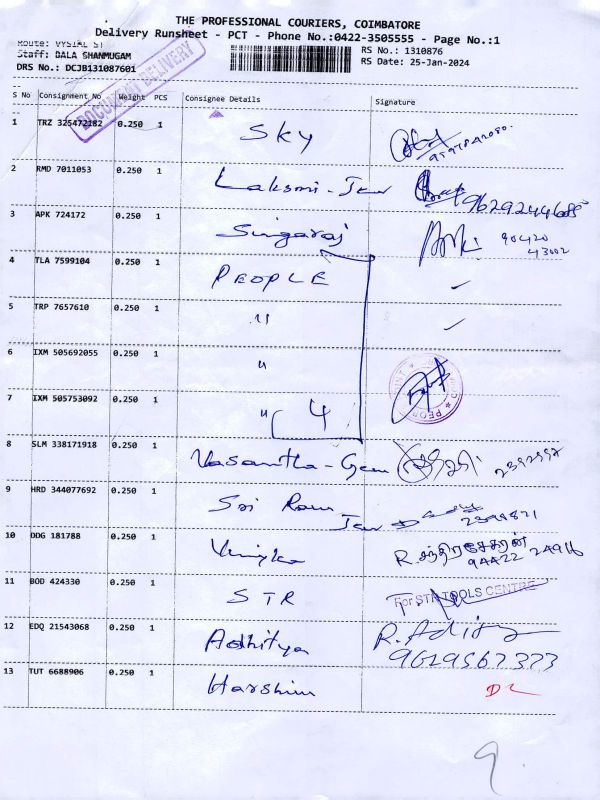 THE PROFESSIONAL COURIERS, COIMBATORE
Delivery Runsheet - PCT - Phone No.:0422-3505555 - Page No.:1
Route: VYSIAL ST
Staff: BALA SHANMUGAM
DRS No.: DCJB131087601
RS No.: 1310876
RS Date: 25-Jan-2024
DOCUMENT DELIVERY
S No Consignment No Weight PCS Consignee Details Signature
1 TRZ 325472182 0.250 1 Sky
2 RMD 7011053 0.250 1 Laksmi-Jew
3 APK 724172 0.250 1 Singaraj 90420
43002
4 TLA 7599104 0.250 1 PEOPLE ✓
5 TRP 7657610 0.250 1 " ✓
6 IXM 505692055 0.250 1 "
7 IXM 505753092 0.250 1 " 4
8 SLM 338171918 0.250 1 Vasantha-Gem
9 HRD 344077692 0.250 1 Sri Ram
Jew
10 DDG 181788 0.250 1 R.சந்திரசேகரன்
94422 24916
11 BOD 424330 0.250 1 STR For STR TOOLS CENTRE
12 EDQ 21543068 0.250 1 Adhitya R.Adity
9629567373
13 TUT 6688906 0.250 1 Harshini DL
9